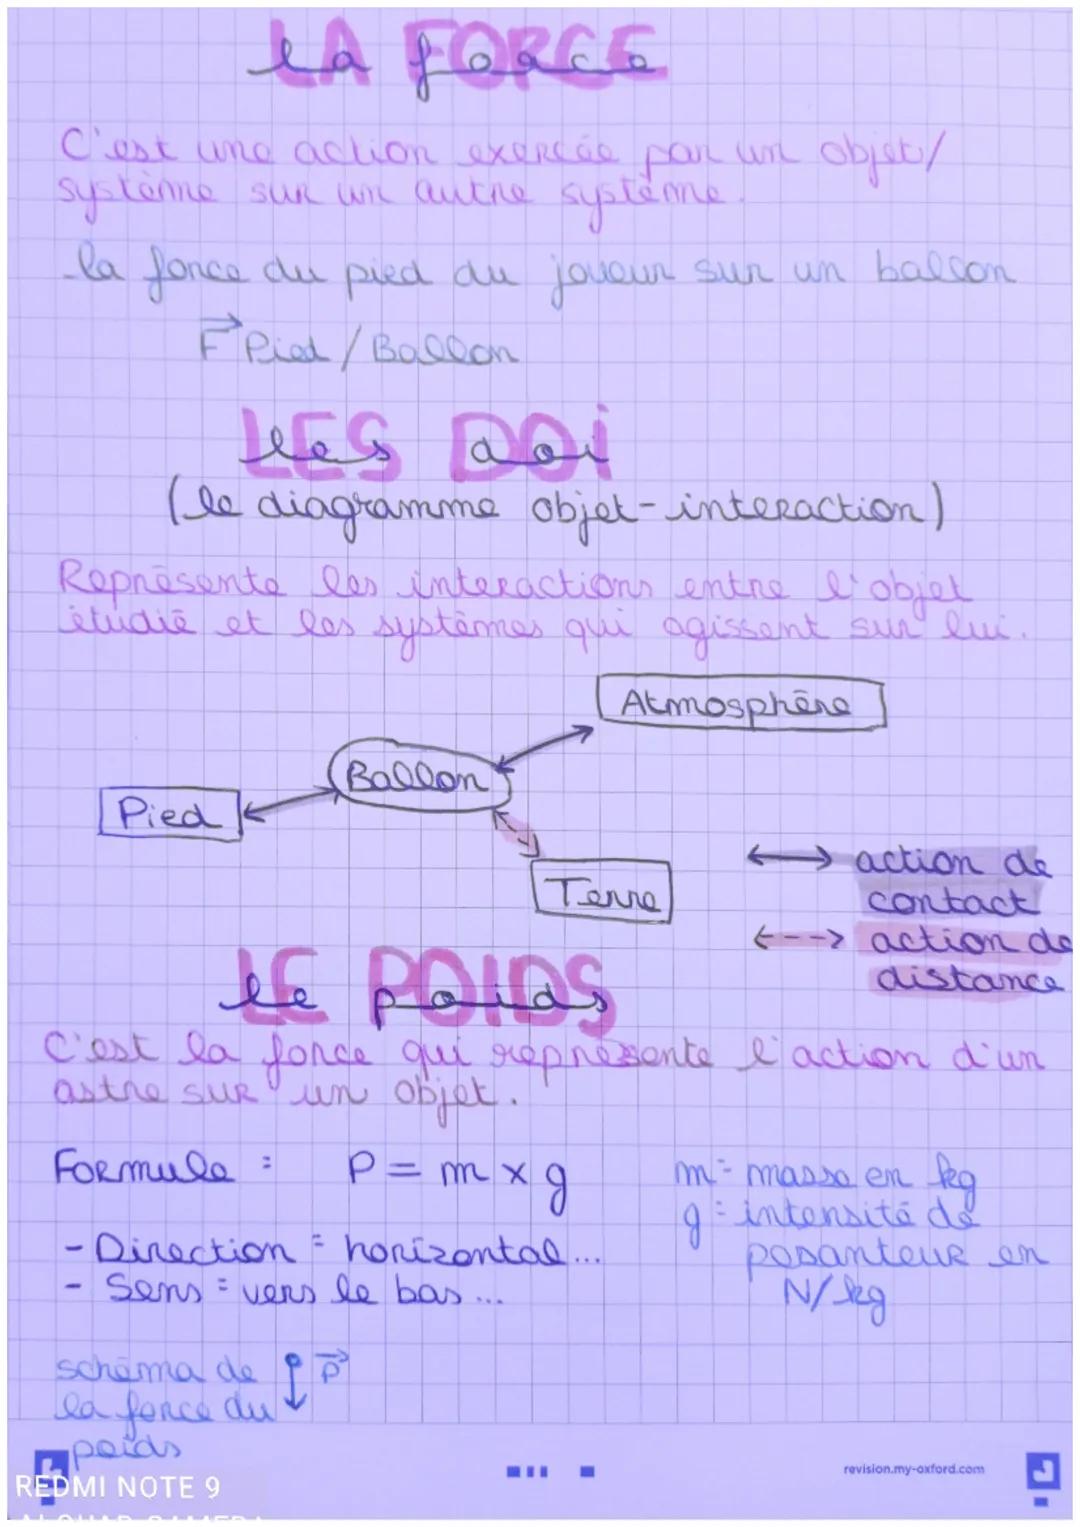 LA FORCE
la force
C'est une action exercée par un objet/
système sur un autre système.
la force du pied du joueur sur un ballon
F Pied / Ballon
LES DOi
les doi
(le diagramme objet-interaction)
Représente les interactions entre l'objet
étudié et les systèmes qui agissent sur lui.
Atmosphère
Ballon
Pied
Terre
<--> action de
contact
<--> action de
distance
LE POIDS
le poids
C'est la force qui représente l'action d'un
astre sur un objet.
Formule : P = m x g
m = masse en kg
g = intensité de
pesanteur en
N/kg
- Direction = horizontal...
- Sens = vers le bas...
schéma de
la force du
poids
P
revision.my-oxford.com
REDMI NOTE 9